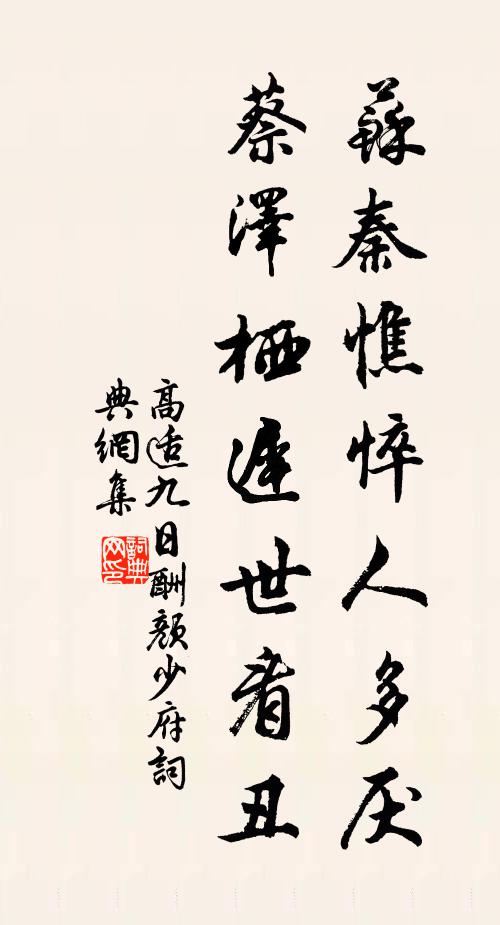 蘇秦憔悴人多厌
蔡澤栖遲世看丑
高适九日酬顏少府詞
典網集
詞典网印